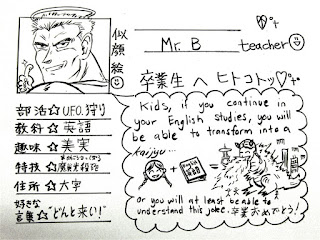 似顔絵
Mr. B teacher
卒業生へヒトコトッ♡
部活☆UFO狩り
教科☆英語
趣味☆美実
特技☆
住所☆大字
好きな言葉☆"どんと来い!"
Kids, if you continue in
your English studies, you will
be able to transform into a
kaijyu...
+ 英語 =
Or you will at least be able to
understand this joke. 卒業おめでとう!